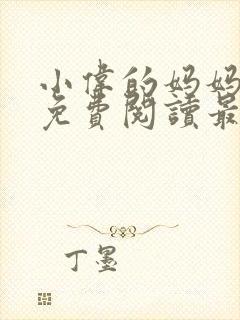 小偉的妈妈
免費閱讀最
丁墨